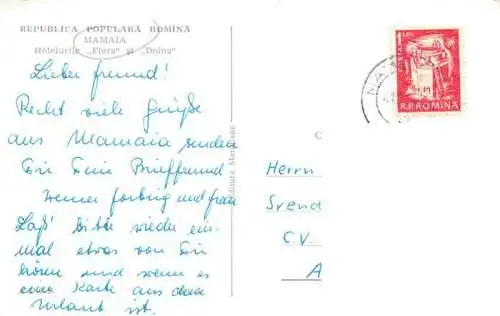 REPUBLICA POPULARĂ ROMÎNA
MAMAIA
Hotelurile „Flora" și „Doina"
Lieber Freund!
Recht viele Grüße
aus Mamaia senden
Dir Dein Brieffreund
Werner und Frau
Laß' bitte wieder ein-
mal etwas von Dir
hören und wenn es
eine Karte aus dem
Urlaub ist.
Editura Meridiane
R.P.ROMINA
Herrn
Svend
C.V.
A